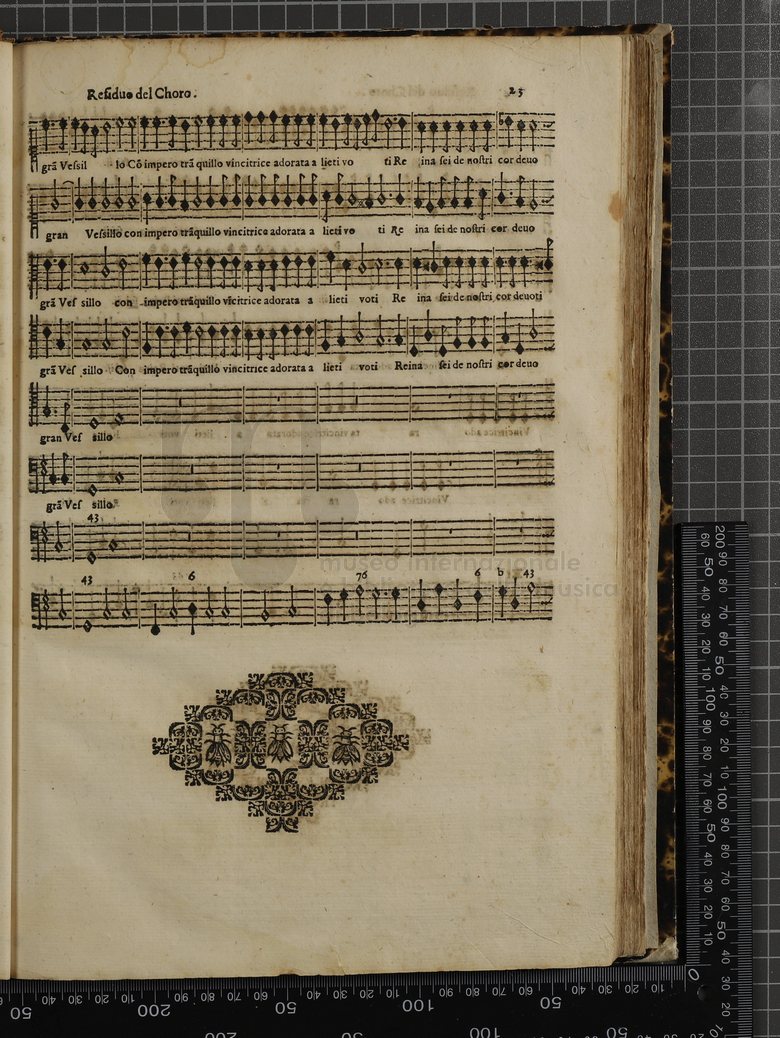 Residuo del Choro. 23
grã Vessil lo Cõ impero trã quillo vincitrice adorata a lieti vo ti Re ina sei de nostri cor deuo
gran Vessillo con impero trãquillo vincitrice adorata a lieti vo ti Re ina sei de nostri cor deuo
grã Ves sillo con impero trãquillo vĩcitrice adorata a lieti voti Re ina sei de nostri cor deuoti
grã Ves sillo Con impero trãquillo vincitrice adorata a lieti voti Reina sei de nostri cor deuo
gran Ves sillo
grã Ves sillo
43
museo internazionale
43 6 76 6 b 43
musica